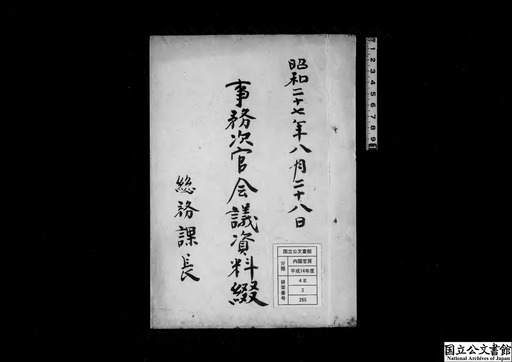 昭和二十七年八月二十八日
事務次官会議資料綴
総務課長
国立公文書館
分類
内閣官房
平成14年度
排架番号
4E
3
265
1 2 3 4 5 6 7 8 9
国立公文書館
National Archives of Japan